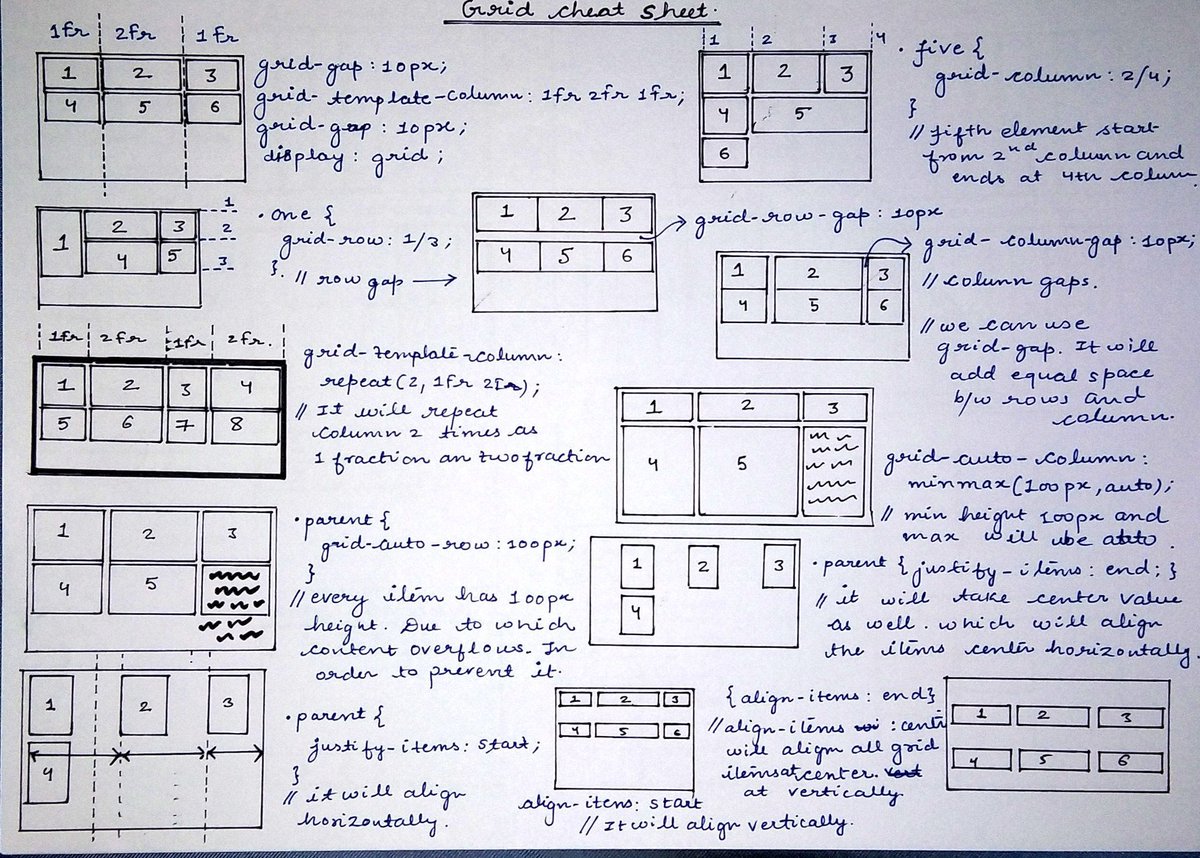 Grid cheat sheet.
1fr 2fr 1fr
1 2 3
4 5 6
grid-gap : 10px;
grid-template-column: 1fr 2fr 1fr;
grid-gap : 10px;
display : grid ;
1 2 3 4
1 2 3
4 5
6
. five {
grid-column: 2/4;
}
// fifth element start
from 2nd column and
ends at 4th column
1 2 3
4 5
1
2
3
. one {
grid-row: 1/3;
}.
// row gap
1 2 3
4 5 6
grid-row-gap : 10px
1 2 3
4 5 6
grid-column-gap : 10px;
// column gaps.
// we can use
grid-gap. It will
add equal space
b/w rows and
column.
1fr 2fr 1fr 2fr.
1 2 3 4
5 6 7 8
grid-template-column:
repeat(2, 1fr 2fr);
// It will repeat
column 2 times as
1 fraction an two fraction
1 2 3
4 5
grid-auto-column:
minmax(100px, auto);
// min height 100px and
max will be auto.
1 2 3
4 5
. parent {
grid-auto-row: 100px;
}
// every item has 100px
height. Due to which
content overflows. In
order to prevent it.
1 2 3
4
. parent { justify-items: end; }
// it will take center value
as well. which will align
the items center horizontally.
1 2 3
4
. parent {
justify-items: start;
}
// it will align
horizontally.
1 2 3
4 5 6
align-items: start
// It will align vertically.
{ align-items: end}
// align-items : center
will align all grid
items at center.
at vertically.
1 2 3
4 5 6